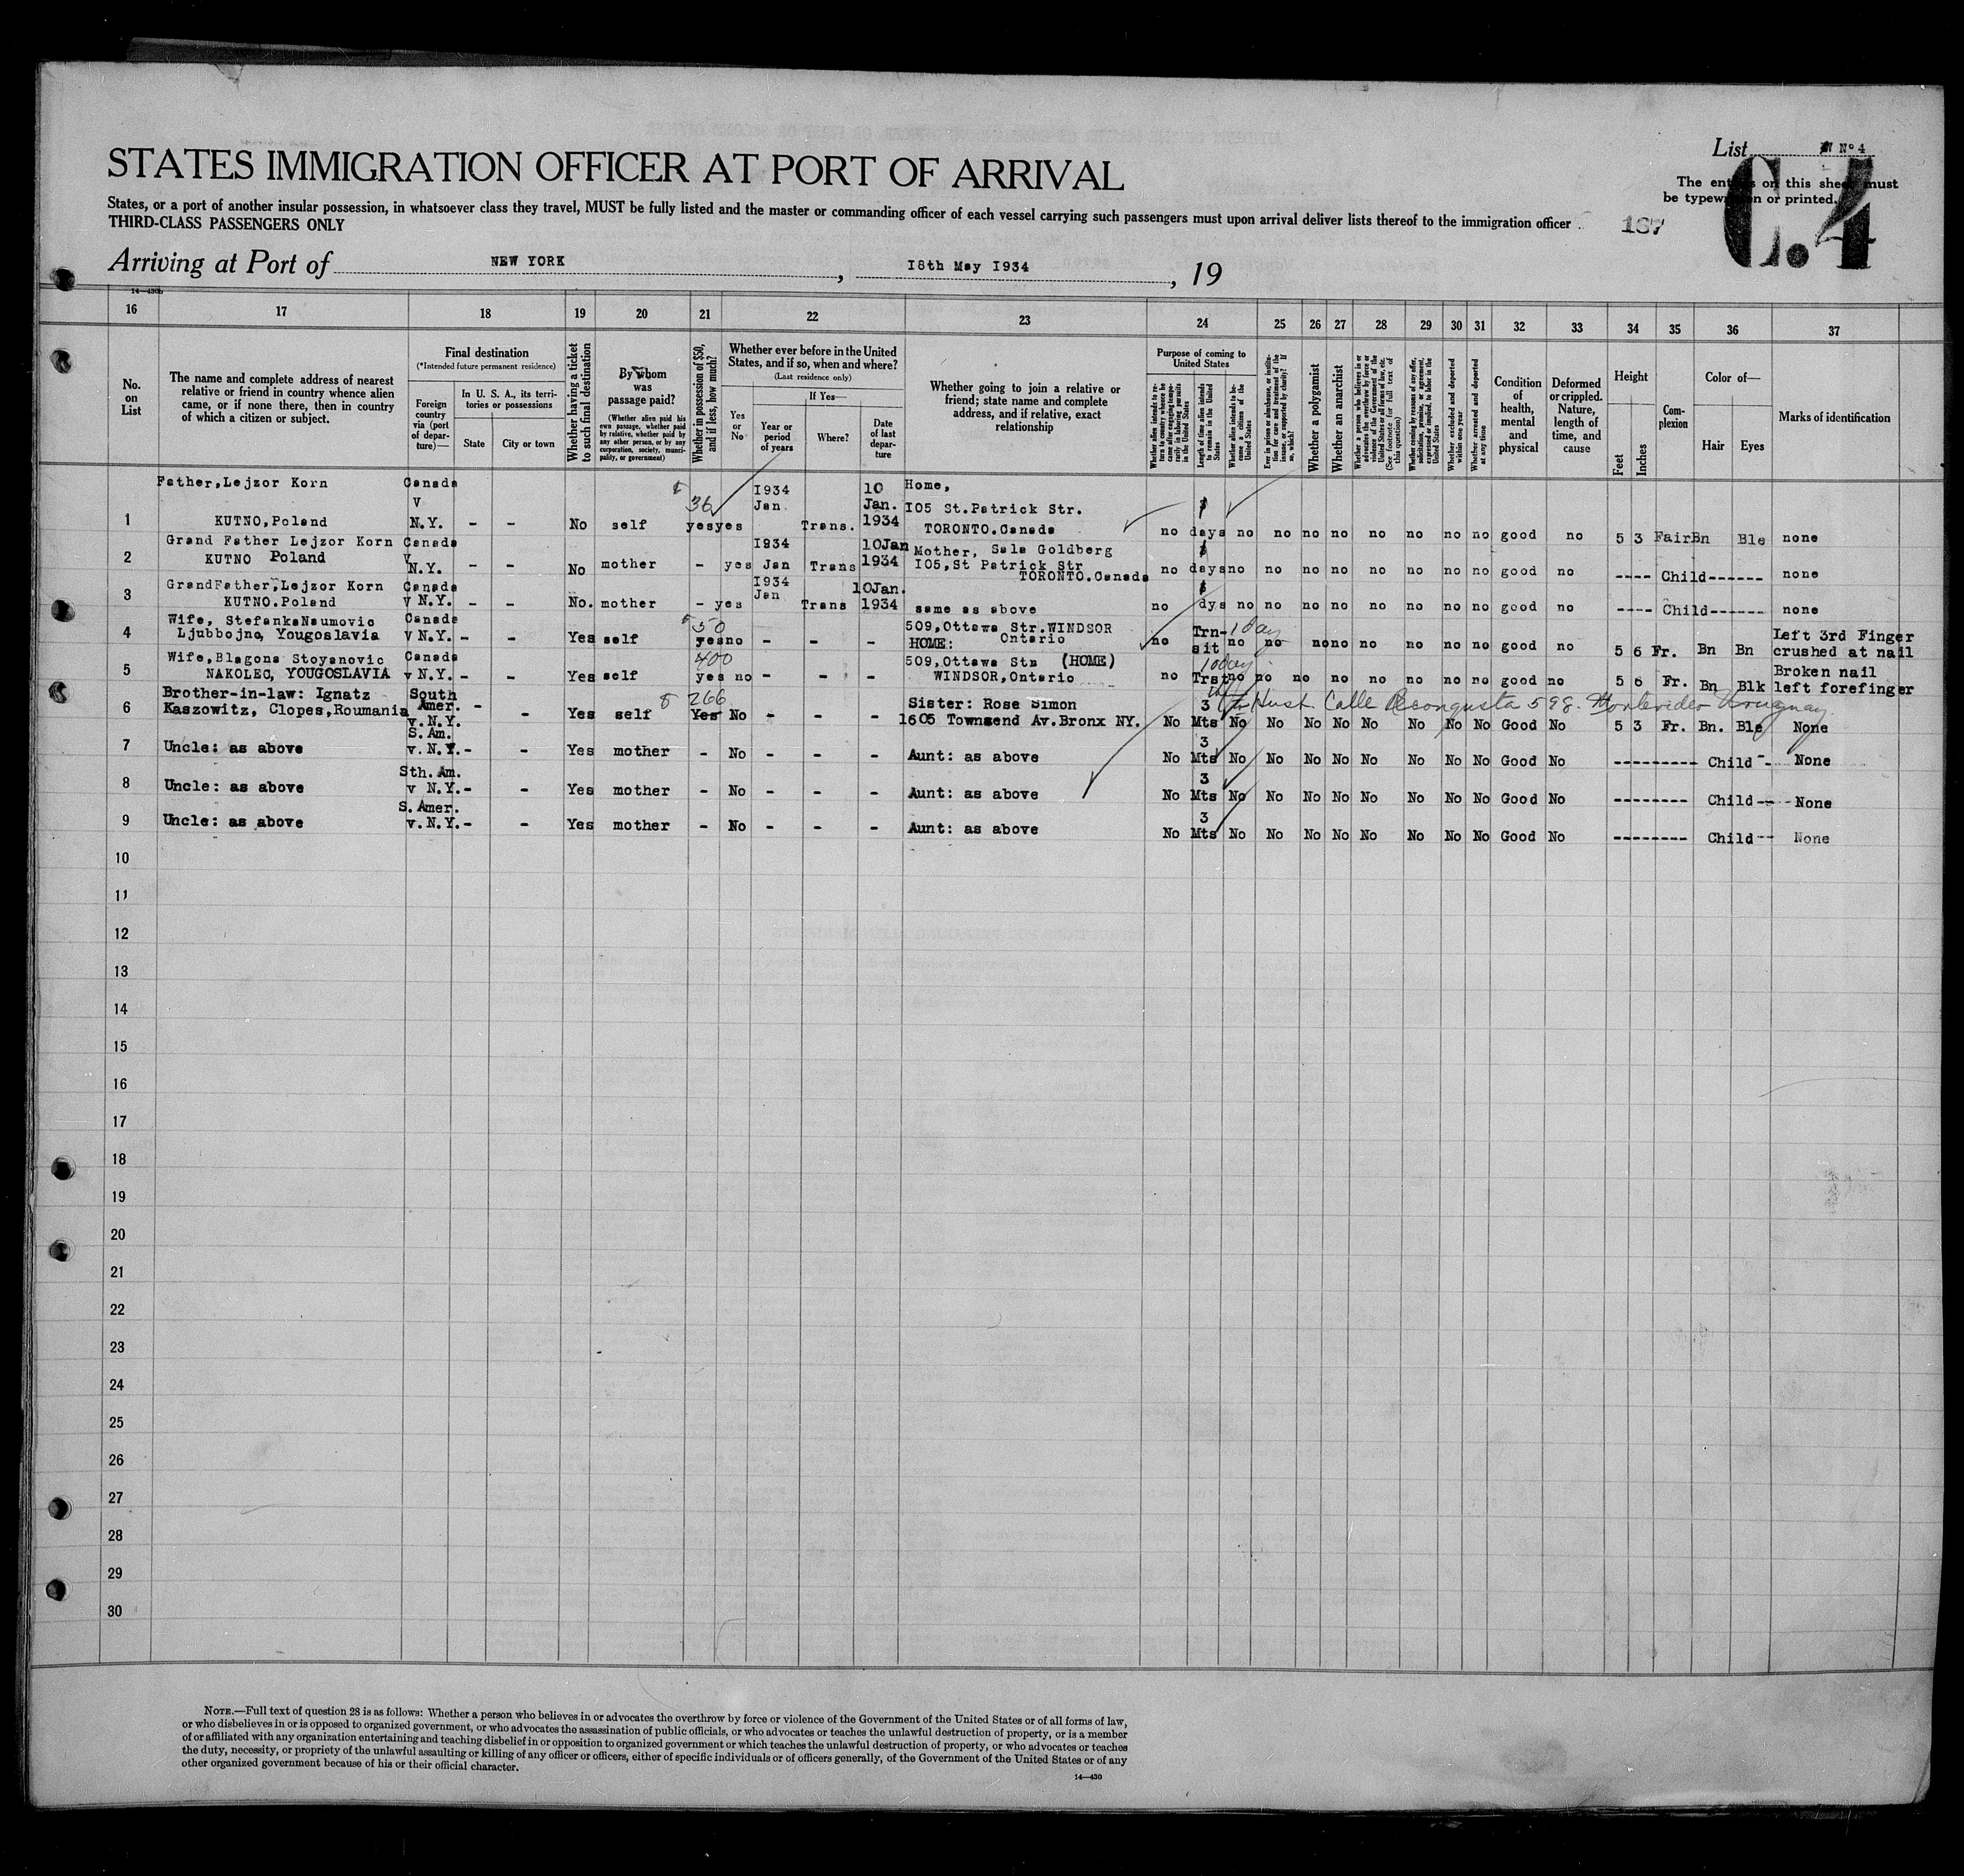 List N No 4
C.4
STATES IMMIGRATION OFFICER AT PORT OF ARRIVAL
The entries on this sheet must
be typewritten or printed.
States, or a port of another insular possession, in whatsoever class they travel, MUST be fully listed and the master or commanding officer of each vessel carrying such passengers must upon arrival deliver lists thereof to the immigration officer
THIRD-CLASS PASSENGERS ONLY
187
Arriving at Port of NEW YORK, 18th May 1934, 19
14—430b
16 17 18 19 20 21 22 23 24 25 26 27 28 29 30 31 32 33 34 35 36 37
No. on List
The name and complete address of nearest relative or friend in country whence alien came, or if none there, then in country of which a citizen or subject.
Final destination
(*Intended future permanent residence)
Foreign country via (port of departure)—
In U. S. A., its territories or possessions
State
City or town
Whether having a ticket to such final destination
By whom was passage paid?
(Whether alien paid his own passage, whether paid by relative, whether paid by any other person, or by any corporation, society, municipality, or government)
Whether in possession of $50, and if less, how much?
Whether ever before in the United States, and if so, when and where?
(Last residence only)
Yes or No
If Yes—
Year or period of years
Where?
Date of last departure
Whether going to join a relative or friend; state name and complete address, and if relative, exact relationship
Purpose of coming to United States
Whether alien intends to return to country whence he came after engaging temporarily in laboring pursuits in the United States
Length of time alien intends to remain in the United States
Whether alien intends to become a citizen of the United States
Ever in prison or almshouse, or institution for care and treatment of the insane, or supported by charity? If so, which?
Whether a polygamist
Whether an anarchist
Whether a person who believes in or advocates the overthrow by force or violence of the Government of the United States or all forms of law, etc. (See footnote for full text of this question)
Whether coming by reason of any offer, solicitation, promise, or agreement, expressed or implied, to labor in the United States
Whether excluded and deported within one year
Whether arrested and deported at any time
Condition of health, mental and physical
Deformed or crippled. Nature, length of time, and cause
Height
Feet
Inches
Complexion
Color of—
Hair
Eyes
Marks of identification
1 Father,Lejzor Korn KUTNO,Poland Canada V N.Y. - - No self 36 yes yes 1934 Jan Trans. 10 Jan. 1934 Home, 105 St.Patrick Str. TORONTO.Canada no days no no no no no no no no good no 5 3 Fair Bn Ble none
2 Grand Father Lejzor Korn KUTNO Poland Canada V N.Y. - - No mother - yes 1934 Jan Trans 10Jan 1934 Mother, Sala Goldberg 105,St Patrick Str TORONTO.Canada no days no no no no no no no no good no ---- Child------ none
3 GrandFather,Lejzor Korn KUTNO.Poland Canada V N.Y. - - No. mother - yes 1934 Jan Trans 10Jan. 1934 same as above no dys no no no no no no no no good no ---- Child------ none
4 Wife, StefankaNaumovic Ljubbojno, Yougoslavia Canada V N.Y. - - Yes self 50 yes no - - - 509,Ottawa Str.WINDSOR HOME: Ontario no Trn-sit 1 day no no no no no no no no good no 5 6 Fr. Bn Bn Left 3rd Finger crushed at nail
5 Wife,Blagona Stoyanovic NAKOLEC, YOUGOSLAVIA Canada v N.Y. - - Yes self 400 yes no - - - 509,Ottawa Str (HOME) WINDSOR,Ontario no Trst no no no no no no no no good no 5 6 Fr. Bn Blk Broken nail left forefinger
6 Brother-in-law: Ignatz Kaszowitz, Clopes,Roumania South Amer. v.N.Y. - - Yes self 266 Yes No - - - Sister: Rose Simon 1605 Townsend Av.Bronx NY. No 3 Mts No No No No No No No No Good No 5 3 Fr. Bn. Ble None
Husb. Calle Reconquista 598. Montevideo Uruguay
7 Uncle: as above S.Am. v.N.Y.- - Yes mother - No - - - Aunt: as above No 3 Mts No No No No No No No No Good No --------- Child - None
8 Uncle: as above Sth.Am. v N.Y.- - Yes mother - No - - - Aunt: as above No 3 Mts No No No No No No No No Good No -------- Child-- None
9 Uncle: as above S.Amer. v.N.Y.- - Yes mother - No - - - Aunt: as above No 3 Mts No No No No No No No No Good No -------- Child-- None
10
11
12
13
14
15
16
17
18
19
20
21
22
23
24
25
26
27
28
29
30
NOTE.—Full text of question 28 is as follows: Whether a person who believes in or advocates the overthrow by force or violence of the Government of the United States or of all forms of law,
or who disbelieves in or is opposed to organized government, or who advocates the assassination of public officials, or who advocates or teaches the unlawful destruction of property, or is a member
of or affiliated with any organization entertaining and teaching disbelief in or opposition to organized government or which teaches the unlawful destruction of property, or who advocates or teaches
the duty, necessity, or propriety of the unlawful assaulting or killing of any officer or officers, either of specific individuals or of officers generally, of the Government of the United States or of any
other organized government because of his or their official character.
14—430